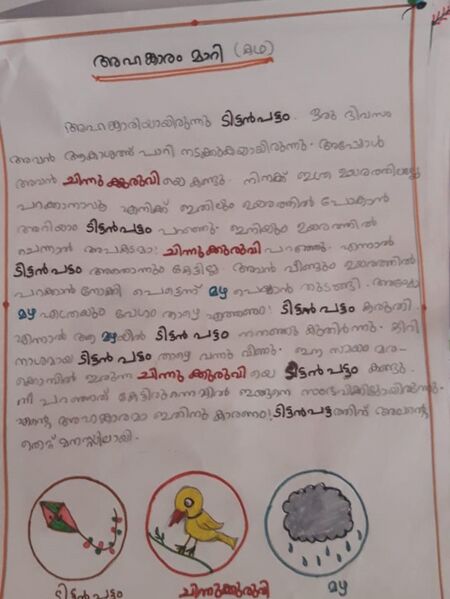 അഹങ്കാരം മാറി (കഥ)
അഹങ്കാരിയായിരുന്നു ടിട്ടൻപട്ടം. ഒരു ദിവസം
അവൻ ആകാശത്ത് പാറി നടക്കുകയായിരുന്നു. അപ്പോൾ
അവൻ ചിന്നുക്കുരുവി യെ കണ്ടു. നിനക്ക് ഇത്ര ഉയരത്തിലല്ലേ
പറക്കാനാവൂ എനിക്ക് ഇതിലും ഉയരത്തിൽ പോകാൻ
അറിയാം ടിട്ടൻപട്ടം പറഞ്ഞു. ഇനിയും ഉയരത്തിൽ
ചെന്നാൽ അപകടമാ! ചിന്നുക്കുരുവി പറഞ്ഞു. എന്നാൽ
ടിട്ടൻപട്ടം അതൊന്നും കേട്ടില്ല. അവൻ വീണ്ടും ഉയരത്തിൽ
പറക്കാൻ നോക്കി പെട്ടെന്ന് മഴ പെയ്യാൻ തുടങ്ങി. അയ്യോ
മഴ എത്രയും വേഗം താഴെ എത്തണം! ടിട്ടൻപട്ടം കരുതി.
എന്നാൽ ആ മഴയിൽ ടിട്ടൻ പട്ടം നനഞ്ഞു കുതിർന്നു.
നാശമായ ടിട്ടൻ പട്ടം താഴെ വന്നു വീണു. ഈ സമയം മര-
ക്കൊമ്പിൽ ഇരുന്ന ചിന്നു ക്കുരുവി യെ ടിട്ടൻപട്ടം കണ്ടു.
നീ പറഞ്ഞത് കേട്ടിരുന്നെങ്കിൽ ഇങ്ങനെ സംഭവിക്കില്ലായിരുന്നു.
എന്റെ അഹങ്കാരമാ ഇതിനു കാരണം! ടിട്ടൻപട്ടത്തിന് അവന്റെ
തെറ്റ് മനസ്സിലായി.
ടിട്ടൻപട്ടം ചിന്നുക്കുരുവി മഴ